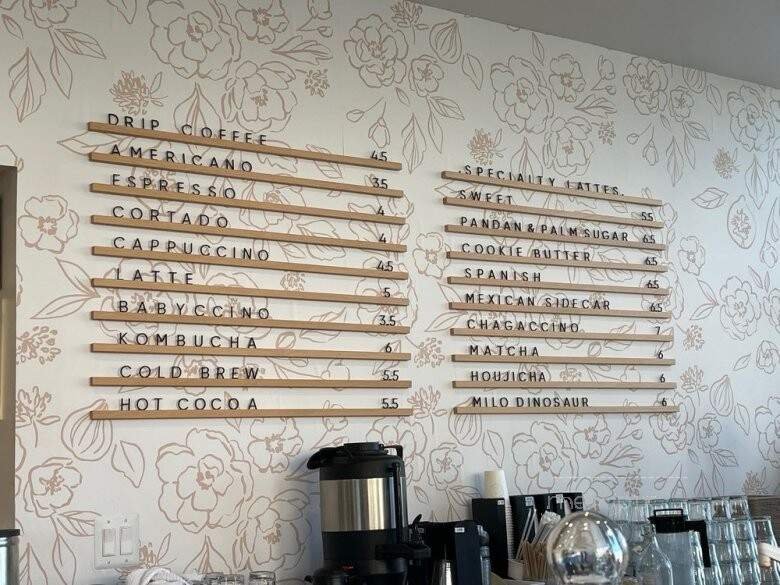 DRIP COFFEE 4.5
AMERICANO 3.5
ESPRESSO 4
CORTADO 4
CAPPUCCINO 4.5
LATTE 5
BABYCCINO 3.5
KOMBUCHA 6
COLD BREW 5.5
HOT COCOA 5.5
SPECIALTY LATTES
SWEET 5.5
PANDAN & PALM SUGAR 6.5
COOKIE BUTTER 6.5
SPANISH 6.5
MEXICAN SIDECAR 6.5
CHAGACCINO 7
MATCHA 6
HOUJICHA 6
MILO DINOSAUR 6